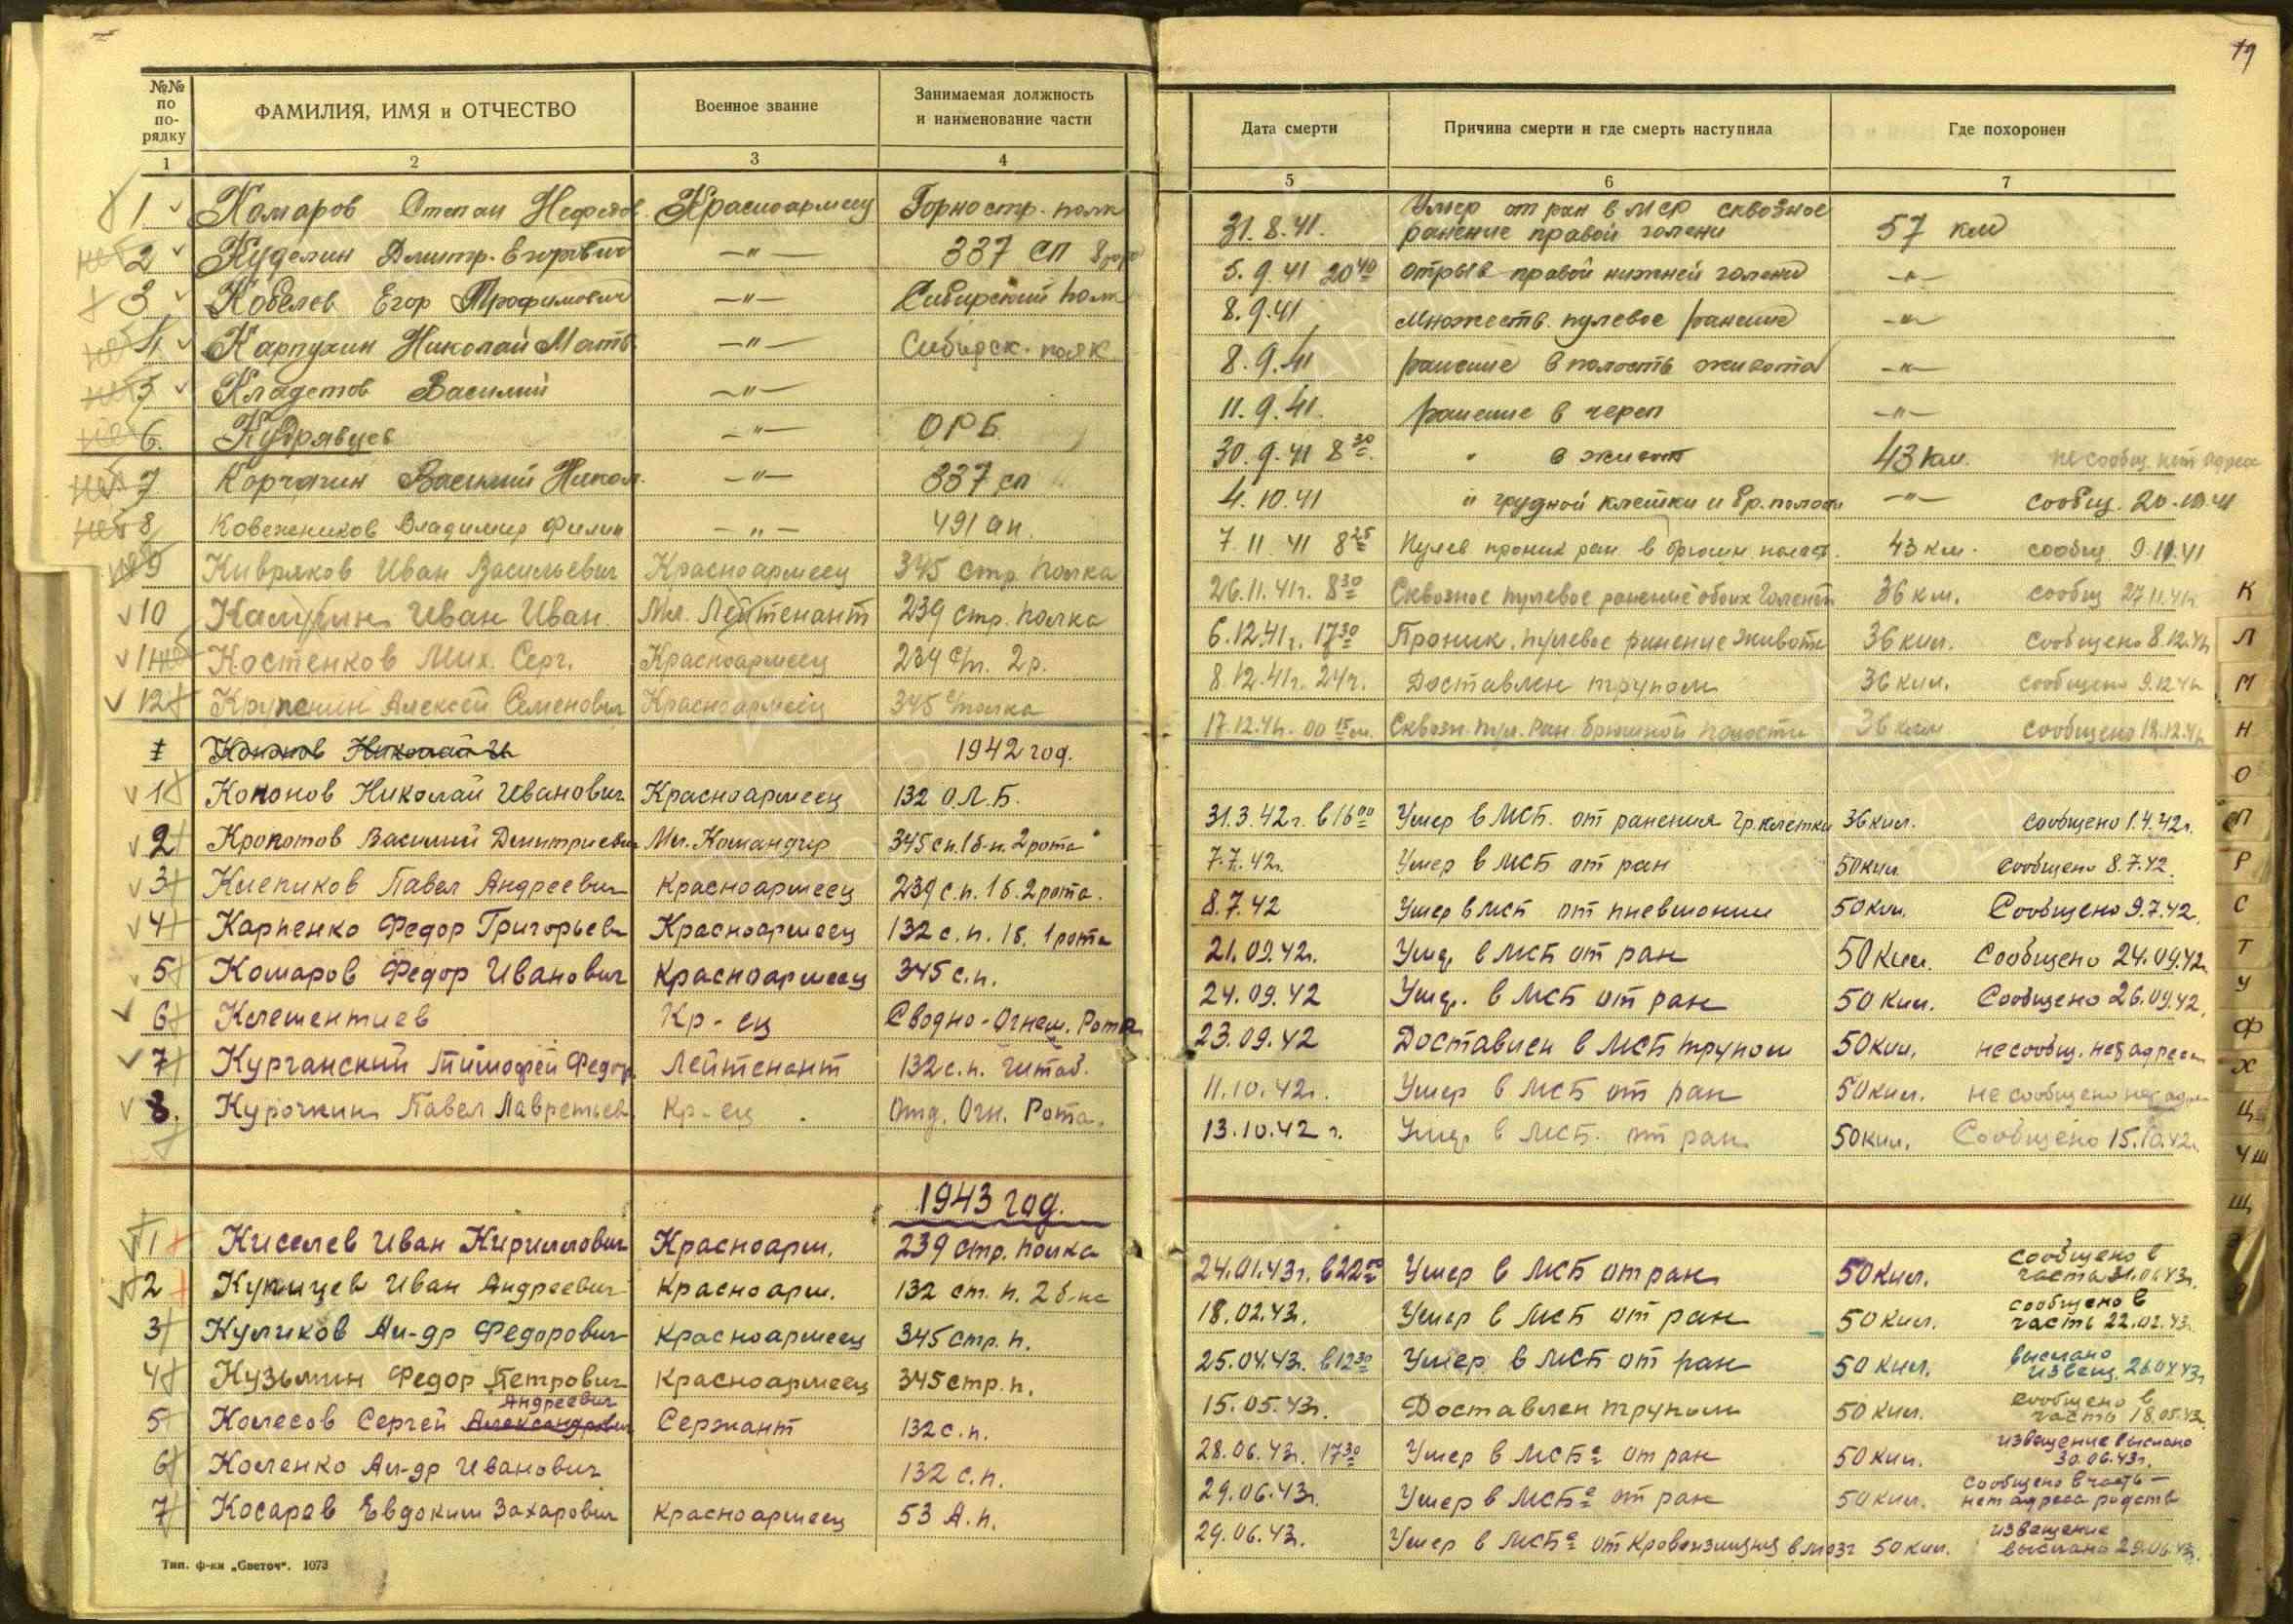 19
№№ по по- рядку
ФАМИЛИЯ, ИМЯ и ОТЧЕСТВО
Военное звание
Занимаемая должность
и наименование части
Дата смерти
Причина смерти и где смерть наступила
Где похоронен
1 2 3 4 5 6 7
1 Комаров Степан Нефедов. Красноармеец Горностр. полк 31.8.41. Умер от ран в МСР сквозное
ранение правой голени 57 км
2 Куделин Дмитр. Егорович —"— 337 СП 5.9.41 20 40 отрыв правой нижней голени —"—
3 Кобелев Егор Трофимович —"— Сибирский полк 8.9.41 Множеств. пулевое ранение —"—
4 Карпухин Николай Матв. —"— Сибирск. полк 8.9.41 ранение в полость живота —"—
5 Кладетов Василий —"— 11.9.41. ранение в череп —"—
6. Кудрявцев —"— ОРБ. 30.9.41 8 30 " в живот 43 км. не сообщ. нет адреса
7 Корчагин Василий Никол. —"— 337 сп 4.10.41 " грудной клетки и бр. полости —"— сообщ. 20.10.41
8 Ковежников Владимир Филип —"— 491 ап. 7.11.41 8 25 Пулев проник ран в брюшн. полост. 43 км. сообщ. 9.11.41
9 Кивряков Иван Васильевич Красноармеец 345 стр. полка 26.11.41г. 8 30 Сквозное пулевое ранение обоих голеней 36 км. сообщ 27.11.41г
10 Калугин Иван Иван. Мл. Лейтенант 239 стр. полка 6.12.41г. 17 30 Проник. пулевое ранение живота 36 км. сообщено 8.12.41г
11 Костенков Мих. Серг. Красноармеец 239 с/п. 2 р. 8.12.41г. 24 ч. Доставлен трупом 36 км. сообщено 9.12.41г
12 Крупенин Алексей Семенович Красноармеец 345 с/полка 17.12.41г. 00 15 м. Сквозн. пул. ран. брюшной полости 36 км сообщено 18.12.41г
1 Кононов Николай И 1942 год.
1 Кононов Николай Иванович Красноармеец 132 О.Л.Б. 31.3.42г. в 16 00 Умер в МСБ. от ранения гр. клетки 36 км. сообщено 1.4.42г.
2 Кропотов Василий Дмитриевич Мл. Командир 345 сп. 1 б-н. 2 рота 7.7.42г. Умер в МСБ от ран 50 км. сообщено 8.7.42.
3 Клепиков Павел Андреевич Красноармеец 239 с.п. 1 б. 2 рота. 8.7.42 Умер в МСБ от пневмонии 50 км. Сообщено 9.7.42.
4 Карпенко Федор Григорьев Красноармеец 132 с.п. 1 б. 1 рота 21.09.42г. Умер. в МСБ от ран 50 км. Сообщено 24.09.42г.
5 Комаров Федор Иванович Красноармеец 345 с.п. 24.09.42 Умер. в МСБ от ран 50 км. Сообщено 26.09.42.
6 Клементиев Кр-ец Сводно-Огнем. Рота 23.09.42 Доставлен в МСБ трупом 50 км. не сообщ. нет адреса
7 Курганский Тимофей Федор. Лейтенант 132 с.п. штаб. 11.10.42г. Умер в МСБ от ран 50 км. не сообщено нет адр
8. Курочкин Павел Лаврентьев Кр-ец Отд. Огн. Рота. 13.10.42 г. Умер в МСБ. от ран 50 км. Сообщено 15.10.42г.
1943 год.
1 Киселев Иван Кириллович Красноарм. 239 стр. полка 24.01.43г. в 22 Умер в МСБ от ран 50 км. сообщено в
часть 31.01.43г.
2 Купицев Иван Андреевич Красноарм. 132 ст. п. 2 б-на 18.02.43г. Умер в МСБ от ран 50 км. сообщено в
часть 22.02.43г.
3 Куликов Ал-др Федорович красноармеец 345 стр. п. 25.04.43г. в 12 30 Умер в МСБ от ран 50 км. выслано
извещ. 26.04.43г
4 Кузьмин Федор Петрович красноармеец 345 стр. п. 15.05.43г. Доставлен трупом 50 км. сообщено в
часть 18.05.43г.
Андреевич
5 Колесов Сергей Александрович Сержант 132 с.п. 28.06.43г. 17 30 Умер в МСБе от ран 50 км. извещение выслано
30.06.43г.
6 Коленко Ал-др Иванович 132 с.п. 29.06.43г. Умер в МСБе от ран 50 км. сообщено в часть —
нет адреса родств
7 Косарев Евдоким Захарович красноармеец 53 А.п. 29.06.43г. Умер в МСБе от кровоизлияния в мозг 50 км. извещение
выслано 29.06.43г.
Тип. ф-ки „Светоч". 1073
К
Л
М
Н
О
П
Р
С
Т
У
Ф
Х
Ц
Ч Ш
Щ